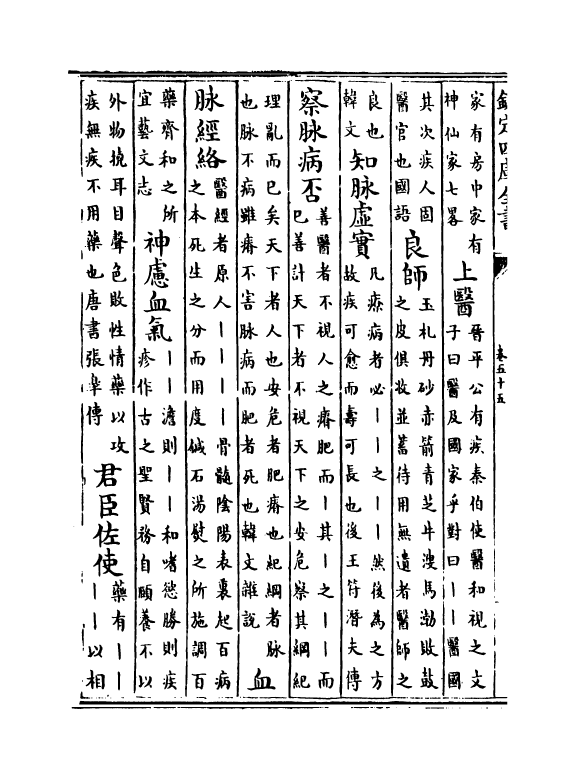 欽定四庫全書
卷五十五
家有房中家有
神仙家七畧
上醫
晉平公有疾秦伯使醫和視之文
子曰醫及國家乎對曰丨丨醫國
其次疾人固
醫官也國語
良師
玉札丹砂赤箭青芝牛溲馬渤敗鼓
之皮俱收並蓄待用無遺者醫師之
良也
韓文
知脉虛實
凡療病者必丨丨之丨丨然後為之方
故疾可愈而壽可長也後王符潛夫傳
察脉病否
善醫者不視人之瘠肥而丨其丨之丨丨而
已善計天下者不視天下之安危察其綱紀
理亂而已矣天下者人也安危者肥瘠也紀綱者脉
也脉不病雖瘠不害脉病而肥者死也韓文雜說
血
脉經絡
醫經者原人丨丨丨丨骨髓陰陽表裏起百病
之本死生之分而用度鍼石湯熨之所施調百
藥齊和之所
宜藝文志
神慮血氣
丨丨澹則丨丨和嗜慾勝則疾
疹作古之聖賢務自頤養不以
外物撓耳目聲色敗性情藥以攻
疾無疾不用藥也唐書張臯傳
君臣佐使
藥有丨丨
丨丨以相